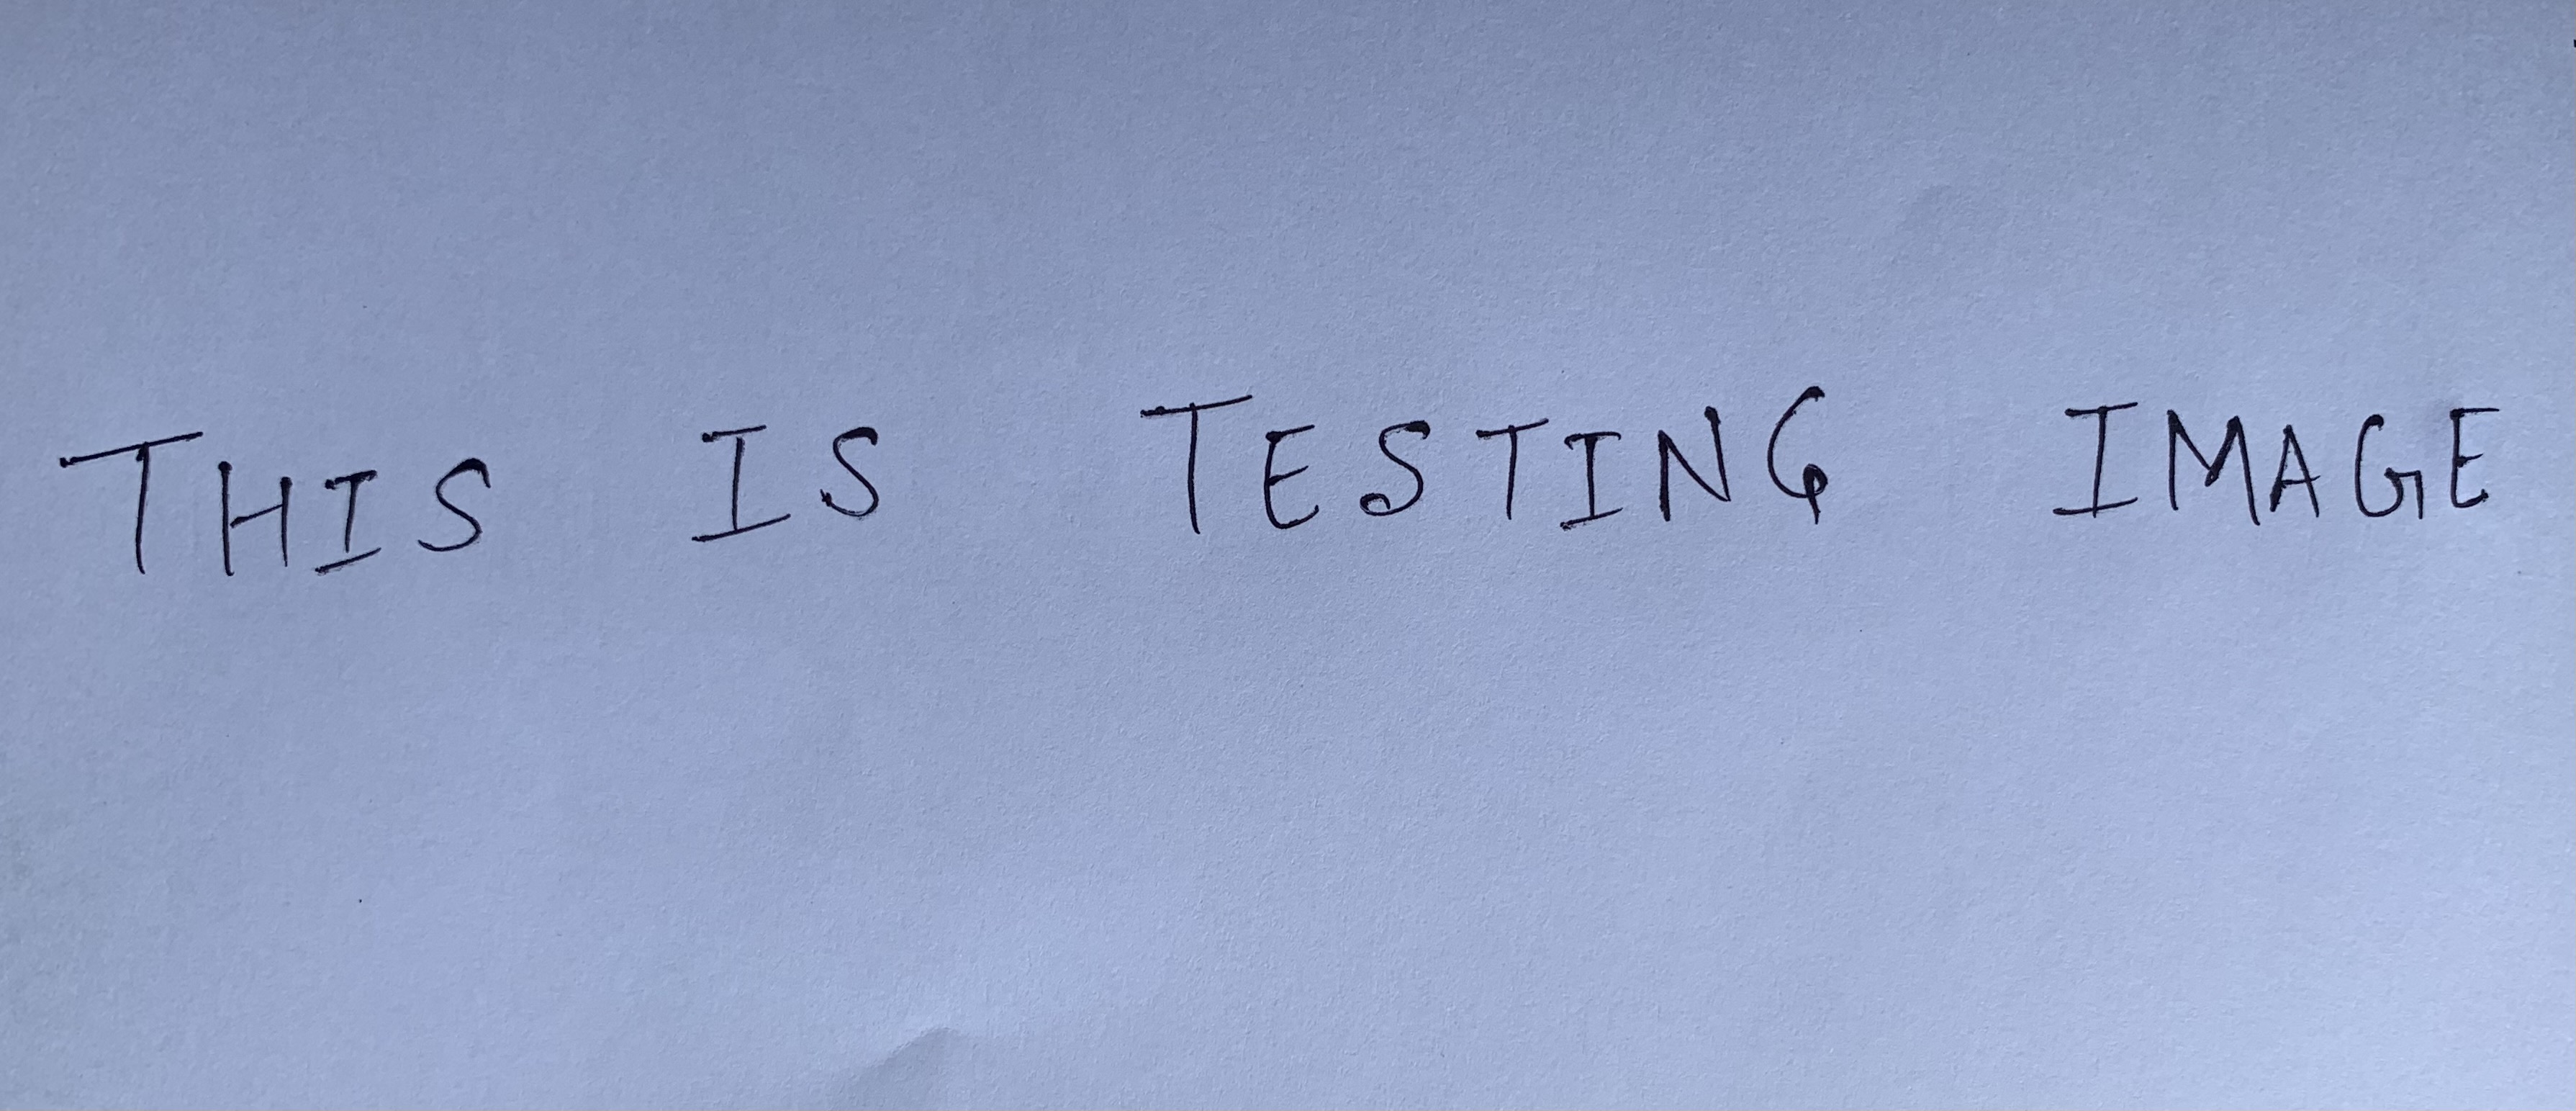 THIS IS TESTING IMAGE